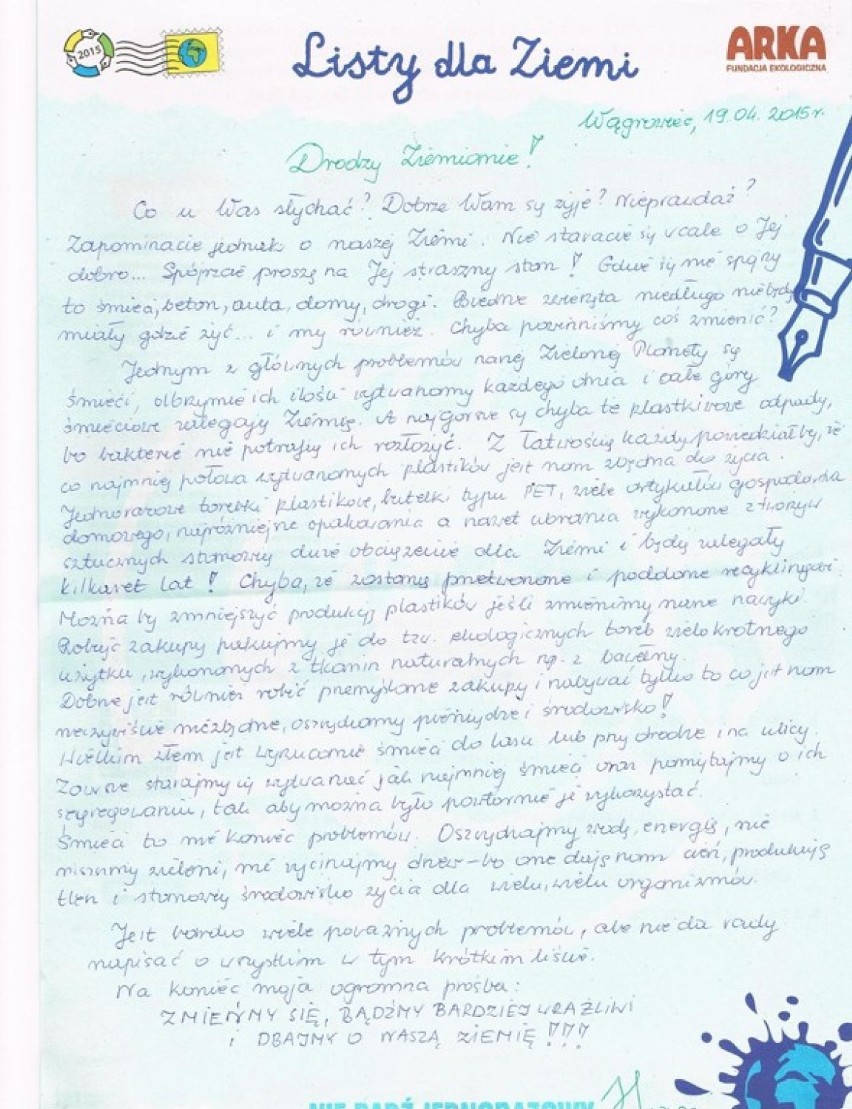 2015
Listy dla Ziemi
ARKA
FUNDACJA EKOLOGICZNA
Wągrowiec, 19.04.2015r.
Drodzy Ziemianie!
Co u Was słychać? Dobrze Wam się żyje? Nieprawdaż?
Zapominacie jednak o naszej Ziemi. Nie staracie się wcale o Jej
dobro... Spójrzcie proszę na Jej straszny stan! Gdzie się nie spojrzy
to śmieci, beton, auta, domy, drogi. Biedne zwierzęta niedługo nie będą
miały gdzie żyć... i my również. Chyba powinniśmy coś zmienić?
Jednym z głównych problemów naszej Zielonej Planety są
śmieci, olbrzymie ich ilości wytwarzamy każdego dnia i całe góry
śmieciowe zalegają Ziemię. A najgorsze są chyba te plastikowe odpady,
bo bakterie nie potrafią ich rozłożyć. Z łatwością każdy powiedziałby, że
co najmniej połowa wytwarzanych plastików jest nam zbędna do życia.
Jednorazowe torebki plastikowe, butelki typu PET, wiele artykułów gospodarstwa
domowego, najróżniejsze opakowania a nawet ubrania wykonane z tworzyw
sztucznych stanowią duże obciążenie dla Ziemi i będą zalegały
kilkaset lat! Chyba, że zostaną przetworzone i poddane recyklingowi.
Można by zmniejszyć produkcję plastików jeśli zmienimy nasze nawyki.
Robiąc zakupy pakujmy je do tzw. ekologicznych toreb wielokrotnego
użytku, wykonanych z tkanin naturalnych np. z bawełny.
Dobrze jest również robić przemyślane zakupy i nabywać tylko to co jest nam
rzeczywiście niezbędne, oszczędzamy pieniądze i środowisko!
Wielkim złem jest wyrzucanie śmieci do lasu lub przy drodze i na ulicy.
Zawsze starajmy się wytwarzać jak najmniej śmieci oraz pamiętajmy o ich
segregowaniu, tak aby można było powtórnie je wykorzystać.
Śmieci to nie koniec problemów. Oszczędzajmy wodę, energię, nie
niszczmy zieleni, nie wycinajmy drzew - bo one dają nam cień, produkują
tlen i stanowią środowisko życia dla wielu, wielu organizmów.
Jest bardzo wiele poważnych problemów, ale nie da rady
napisać o wszystkim w tym krótkim liście.
Na koniec moja ogromna prośba:
ZMIEŃMY SIĘ, BĄDŹMY BARDZIEJ WRAŻLIWI
I DBAJMY O NASZĄ ZIEMIĘ!!!
NIE BĄDŹ JEDNORAZOWY